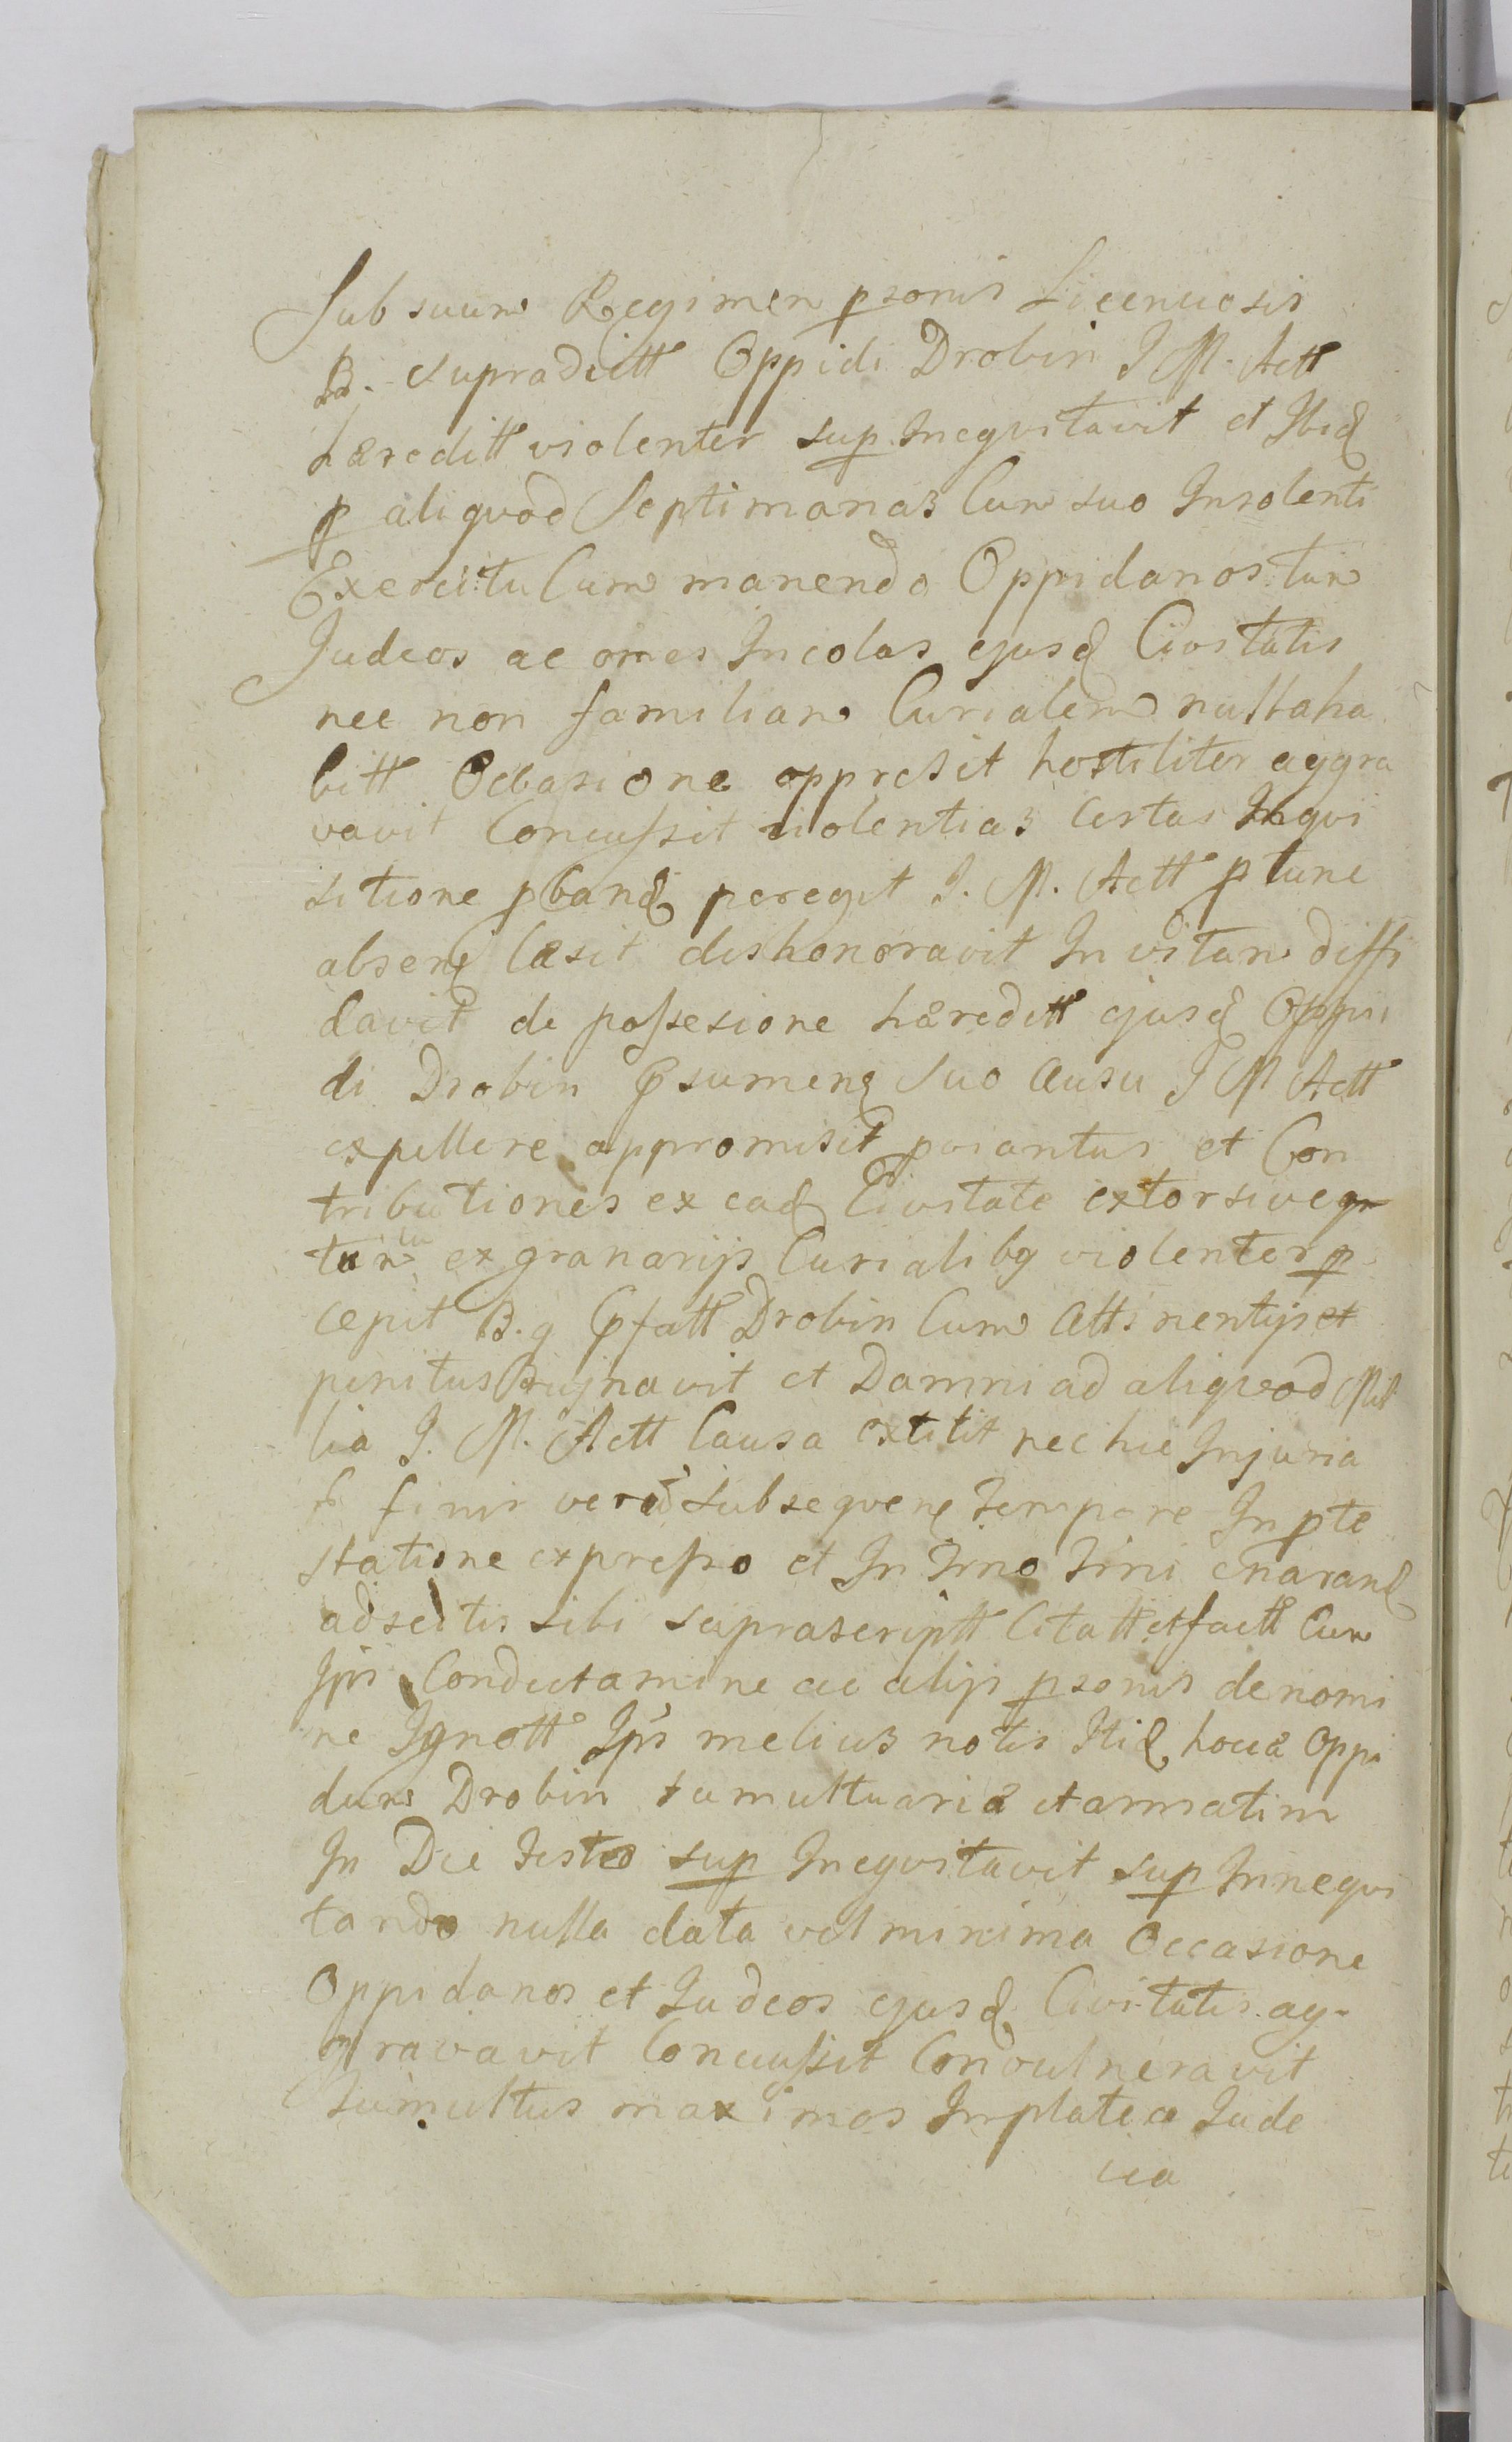 Sub suum Regimen psonis Licenciosis
B. supradictt Oppidi Drobin I M. Actt
hæreditt violenter sup Inequitavit et Ibid
p aliquod Septimanas Cum suo Insolenti
Exercitu Cum manendo Oppidanos tum
Judeos ac omes Incolas ejusd Civitatis
nec non familiam Curialem nulla ha
bitt Occasione oppresit hostiliter aggra
vavit Concussit violentias Certas Inqui
sitione pband peregit I. M. Actt p tunc
absen læsit dishonoravit In vitam diffi
davit de possesione hæreditt ejusd Oppi
di Drobin Psumen Suo Ausu I M Actt
expellere appromisit et Con
tributiones ex ead Civitate extorsive
tum ex granarijs Curialibq violenter p
cepit B. q Pfatt Drobin Cum Attinentijs et
penitus Rujnavit et Damni ad aliquod Mil
lia I. M. Actt Causa extitit nec hic Injuria
finis vero subsequen tempore In pte
statione expresso et In Tmo Tmi enarand
adscitis sibi suprascriptt Citatt et factt Cum
Ipis Conductamine ac alijs psonis de nomi
ne Ignott Ipis melius notis Itid hocce Oppi
dum Drobin tumultuarie et armatim
In Die festo sup Inequitavit sup Innequi
tando nulla data vel minima Occasione
Oppidanos et Judeos ejusd Civitatis ag-
gravavit Concussit Convulneravit
tumultus maximos In platea Jude
ica